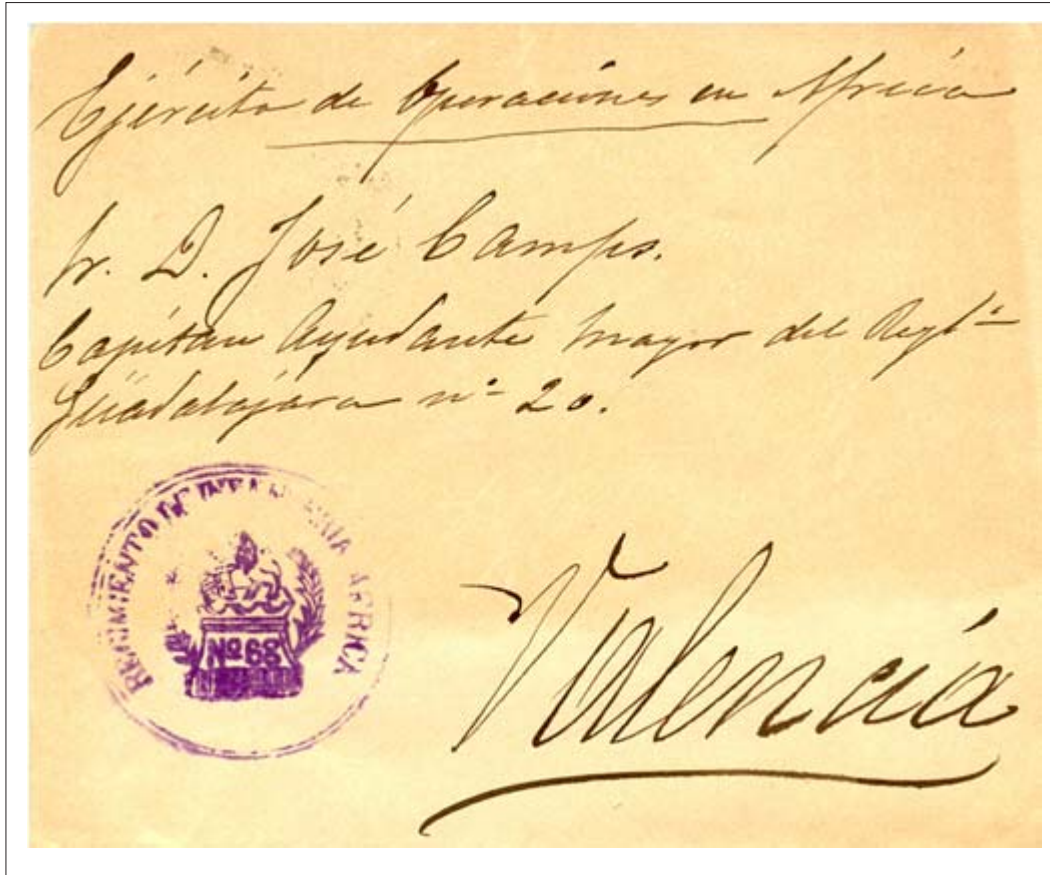 Ejército de Operaciones en África
Sr. D. José Camps.
Capitan Ayudante Mayor del Regto
Guadalajara nº 20.
REGIMIENTO DE INFANTERIA AFRICA
Nº 68
Valencia